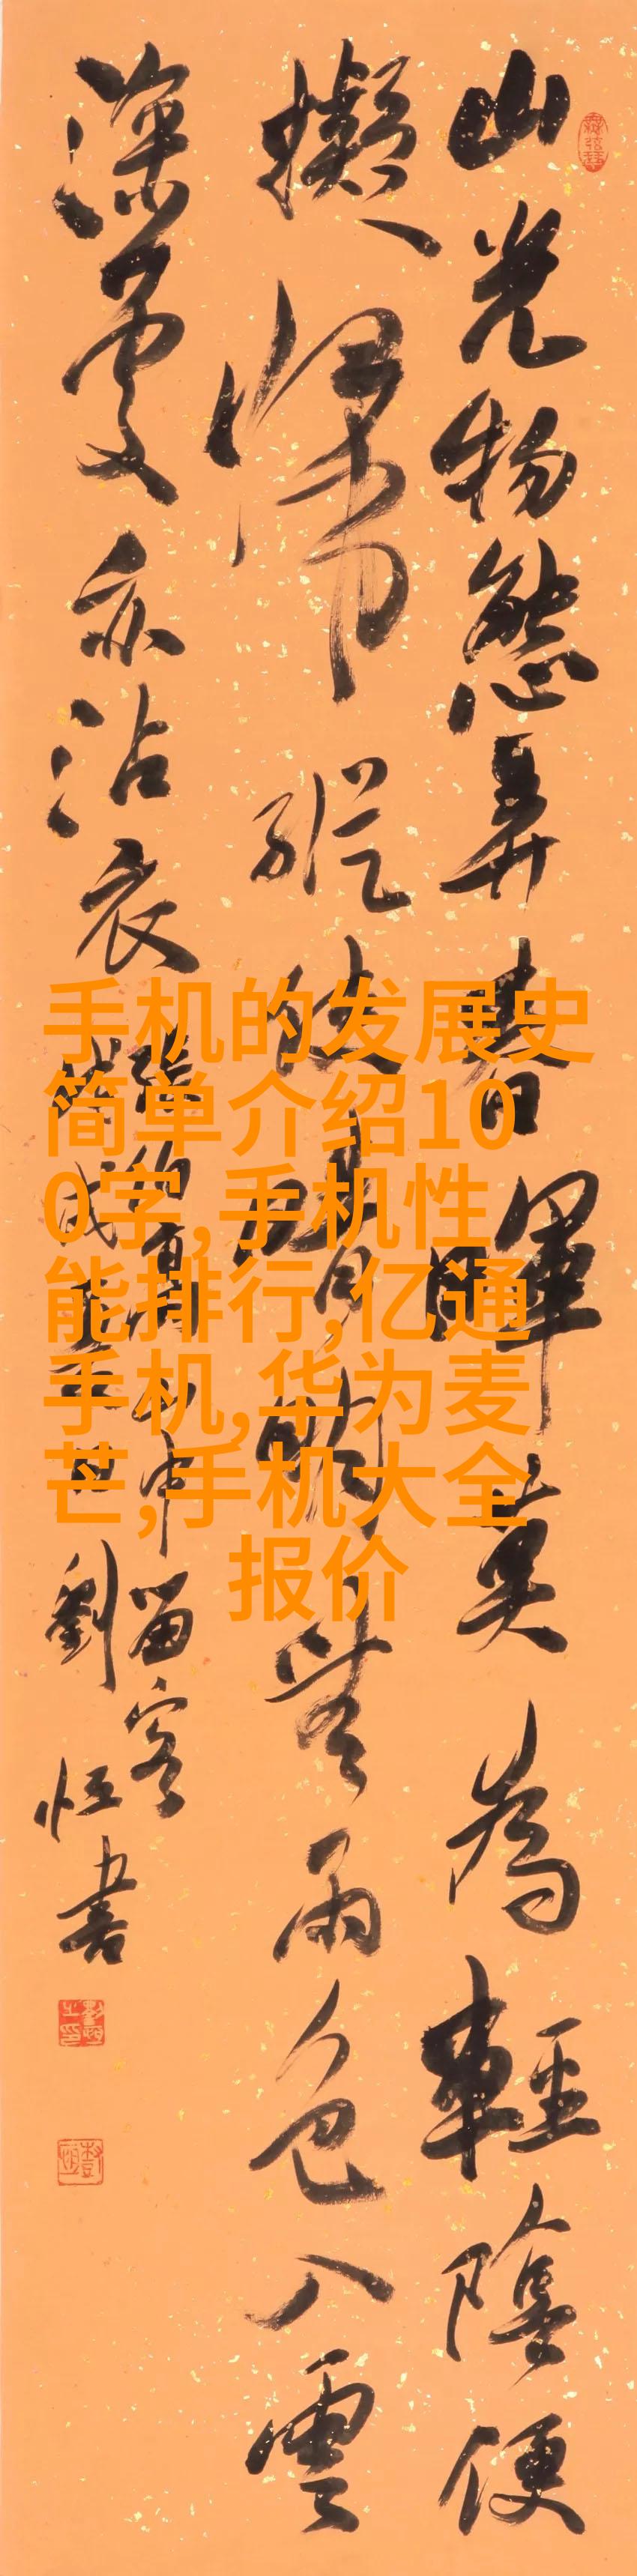 山光物態弄春暉莫為輕陰便
擬歸縱使晴明無雨色入雲
深處亦沾衣
張伯高山中留客
劉恒書
手机的发展史
简单介绍10
0字,手机性
能排行,亿通
手机,华为麦
芒,手机大全
报价